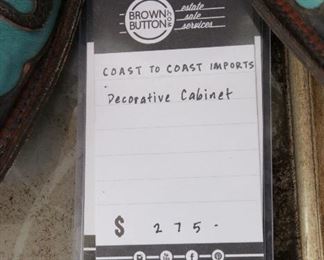 BROWN
BUTTON
estate
sale
services
COAST TO COAST IMPORTS
Decorative Cabinet
$ 275-